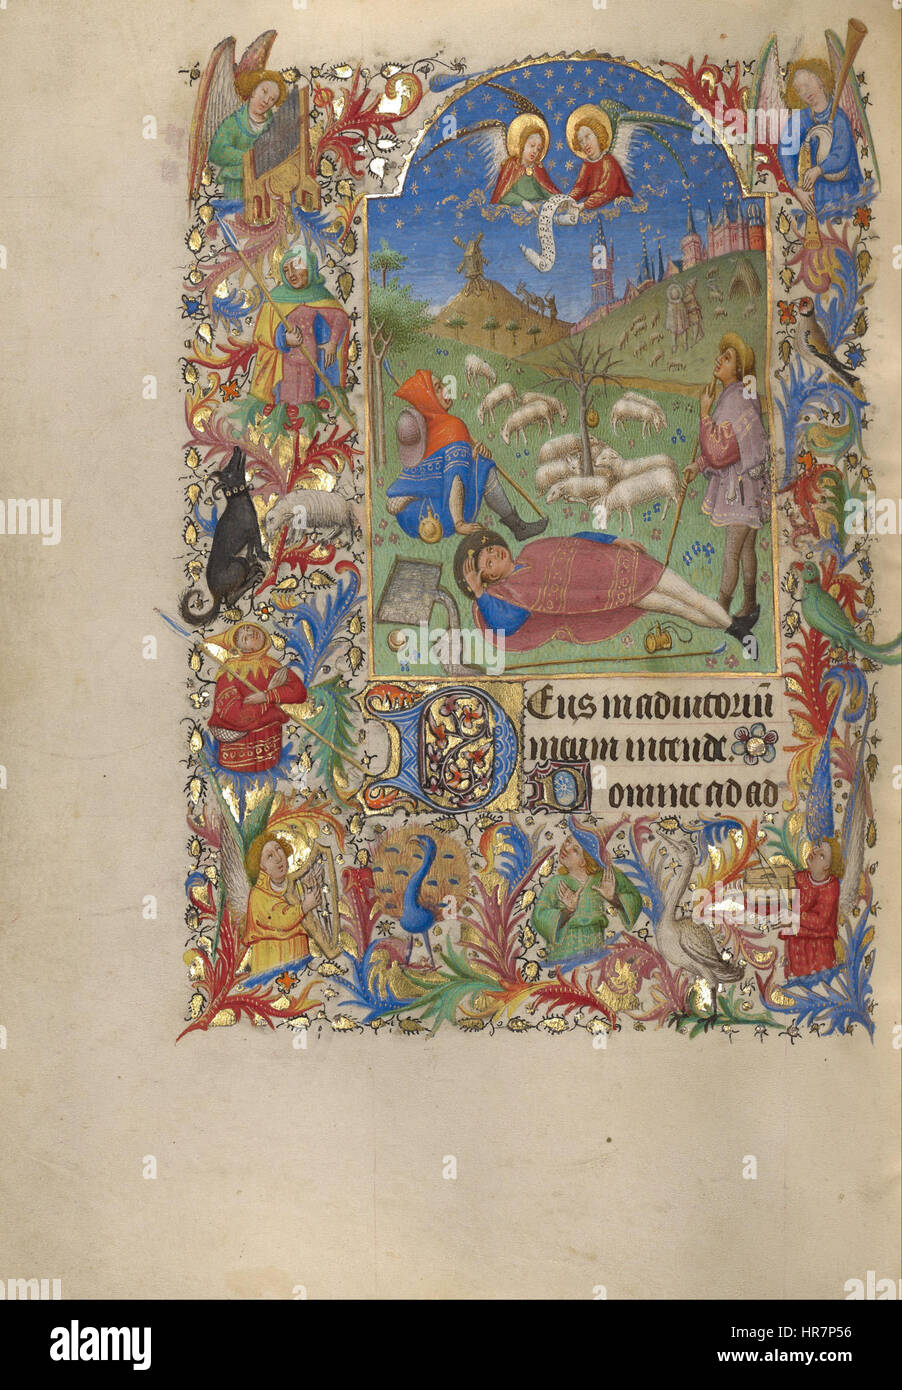 Deus in adiutoriū
meum intende.
Domine ad ad
alamy
Image ID: HR7P56
www.alamy.com